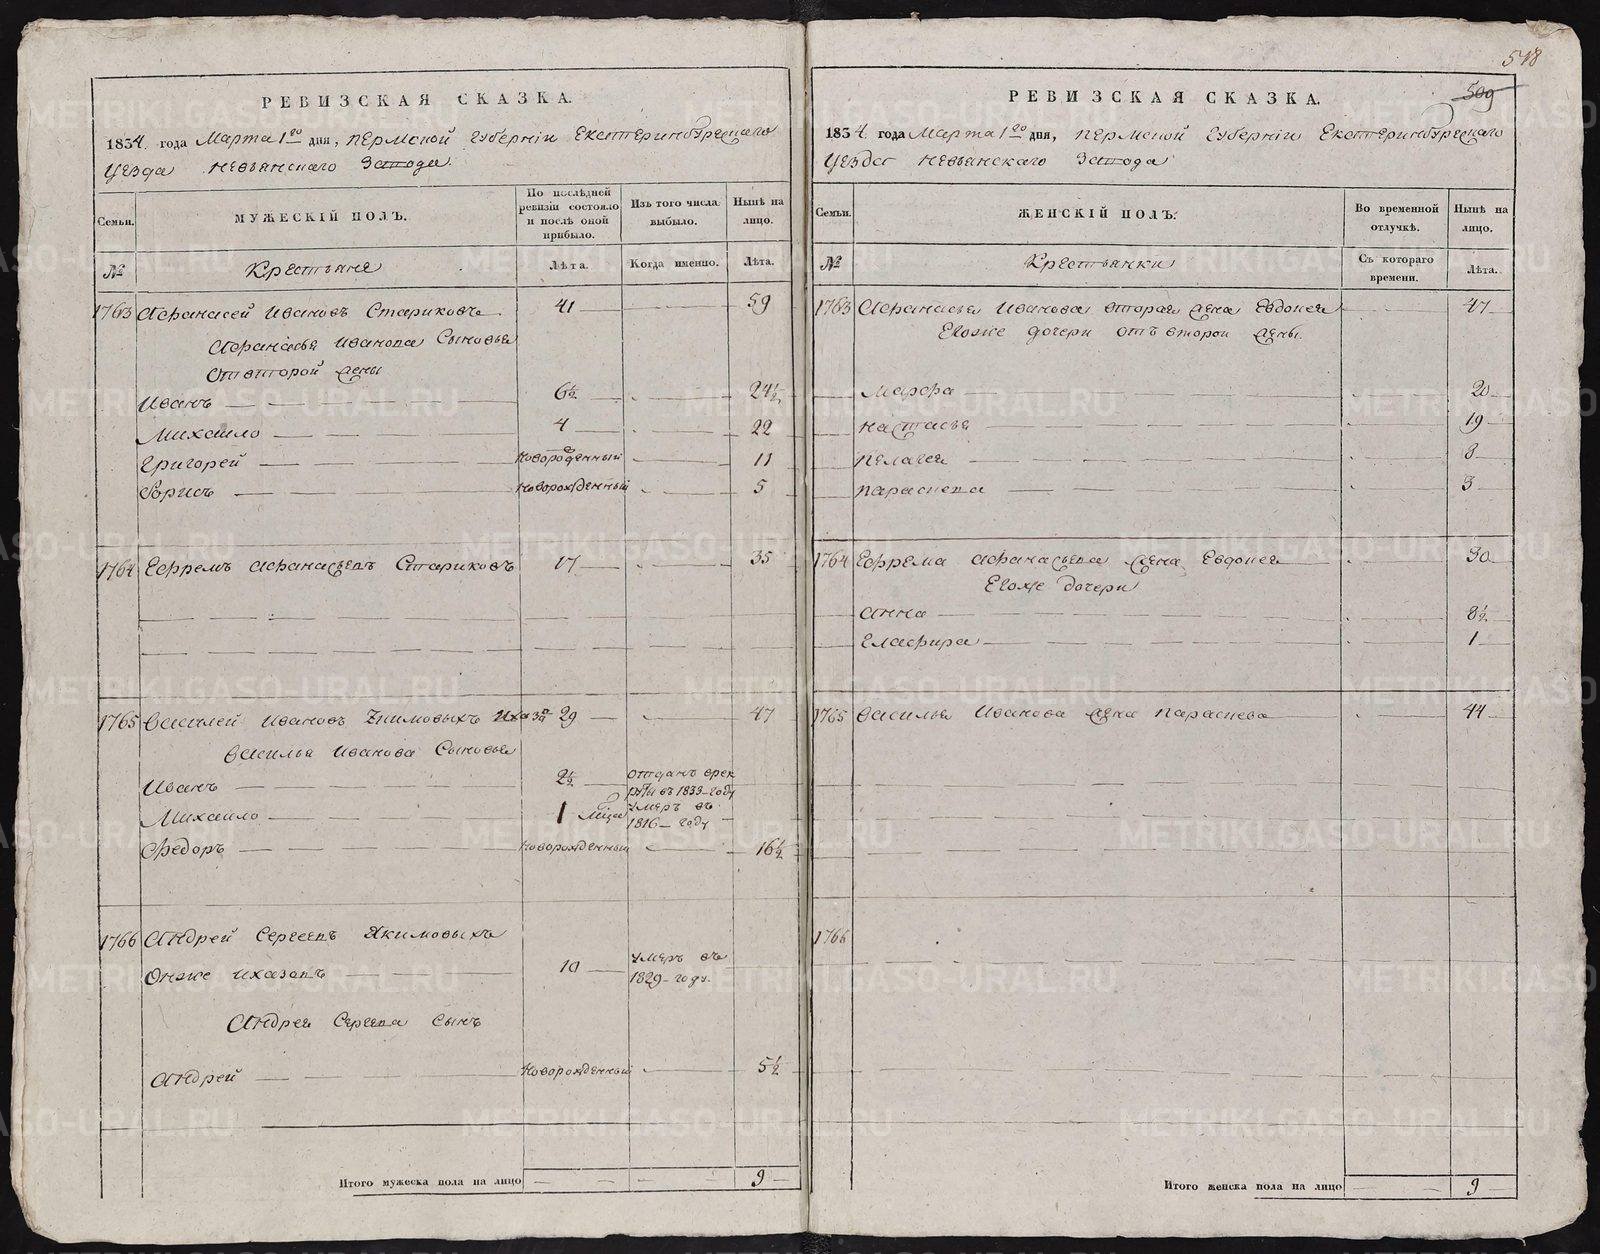 518
509
РЕВИЗСКАЯ СКАЗКА.
1834. года Марта 1го дня, Пермской Губерніи Екатеринбургскаго
Уезда Невьянскаго Завода
Семьи.
МУЖЕСКІЙ ПОЛЪ.
По послѣдней ревизіи состояло и послѣ оной прибыло.
Изъ того числа выбыло.
Нынѣ на лицо.
№
Крестьяне
Лѣта.
Когда именно.
Лѣта.
1763 Афанасей Ивановъ Стариковъ 41 59
Афанасья Иванова Сыновья
От второй жены
Иванъ 6½ 24½
Михаило 4 22
Григорей новорожденный 11
Борисъ новорожденный 5
1764 Ефремъ Афанасьевъ Стариковъ 17 35
1765 Василей Ивановъ 29 47
Василья Иванова Сыновья
Иванъ 2½ Отданъ врек
руты въ 1833 году
Михаило 1 умеръ въ
1816 году
Федоръ новорожденный 16½
1766 Андрей Сергеевъ Якимовыхъ
Онже 10 умеръ въ
1829 году.
Андрея Сергеева сынъ
Андрей новорожденный 5½
Итого мужеска пола на лицо 9
РЕВИЗСКАЯ СКАЗКА.
1834. года Марта 1го дня, Пермской Губерніи Екатеринбургскаго
Уезда Невьянскаго Завода
Семьи.
ЖЕНСКІЙ ПОЛЪ.
Во временной отлучкѣ.
Нынѣ на лицо.
№
Крестьянки
Съ котораго времени.
Лѣта.
1763 Афанасья Иванова вторая жена Евдокея 47
Егоже дочери отъ второй жены.
Марфа 20
Настасья 19
Пелагея 8
Параскева 3
1764 Ефрема Афанасьева жена Евдокея 30
Егоже дочери
Анна 8½
Глафира 1
1765 Василья Иванова жена Параскева 44
1766
Итого женска пола на лицо 9
METRIKI.GASO-URAL.RU